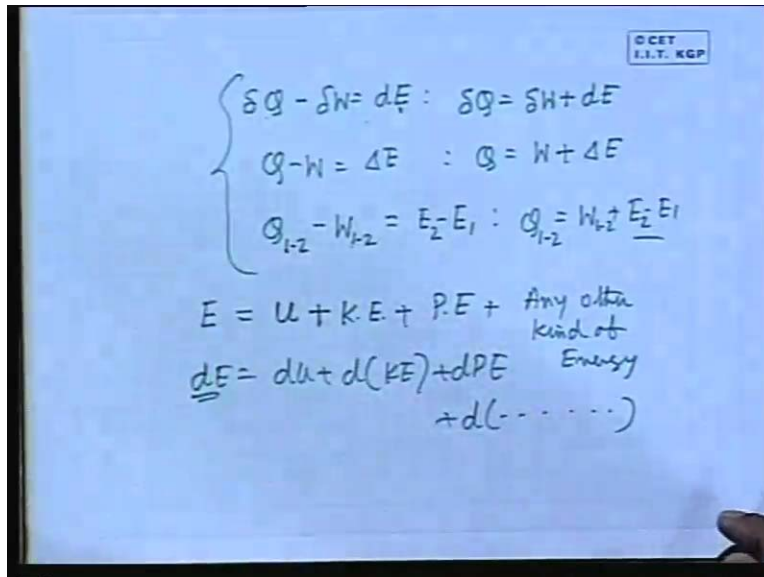 © CET
I.I.T. KGP
δQ - δW = dE : δQ = δW + dE
Q - W = ΔE : Q = W + ΔE
Q₁₋₂ - W₁₋₂ = E₂ - E₁ : Q₁₋₂ = W₁₋₂ + E₂ - E₁
E = U + K.E. + P.E + Any other
kind of
Energy
dE = dU + d(KE) + dPE
+ d(- - - - - -)